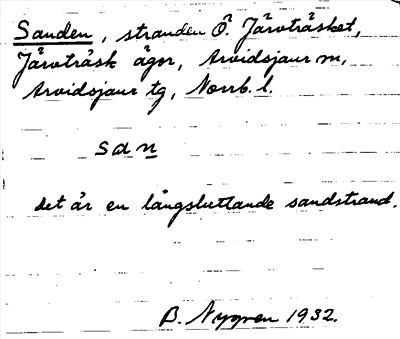 Sanden, stranden Ö. Järvträsket,
Järvträsk ägor, Arvidsjaur m,
Arvidsjaur tg, Norrb. l.
san
det är en långsluttande sandstrand.
B. Nygren 1932.